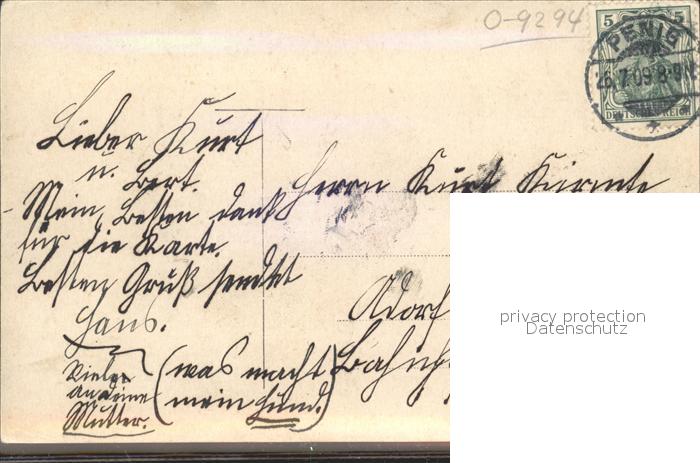 0-9294
5 5
PENIG
26.7.09.8-9N
DEUTSCHES REICH
Lieber Kurt
u. Gert.
Mein Besten dank
für die Karte.
Besten Gruß sendet
Hans.
Vielen
an deine
Mutter.
(was macht
mein Hund.)
Herrn Kurt
Adorf
Bahnh
privacy protection
Datenschutz